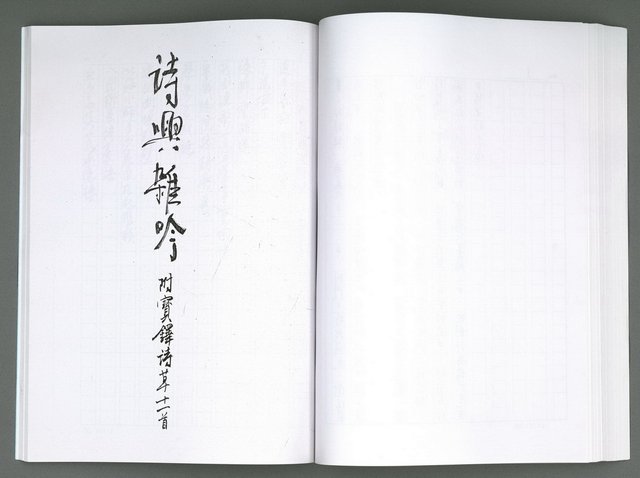 詩興雜吟
附寶鐸詩草十一首